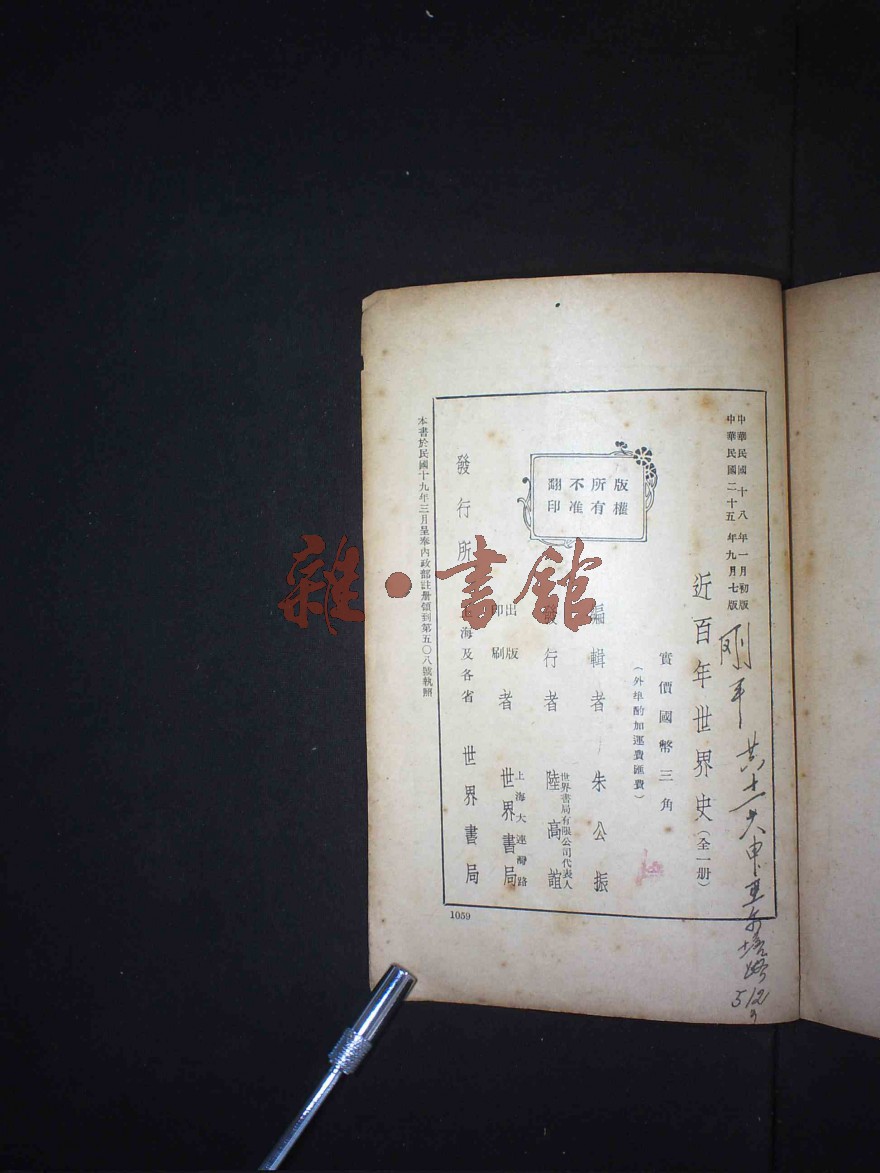 中華民國十八年一月初版
中華民國二十五年九月七版
近百年世界史(全一册)
實價國幣三角
(外埠酌加運費匯費)
版權所有
不准翻印
編輯者 朱公振
發行者 世界書局有限公司代表人 陸高誼
出版印刷者 上海大連灣路 世界書局
發行所 上海及各省 世界書局
本書於民國十九年三月呈奉內政部註册領到第五〇八號執照
1059
雜·書館
512